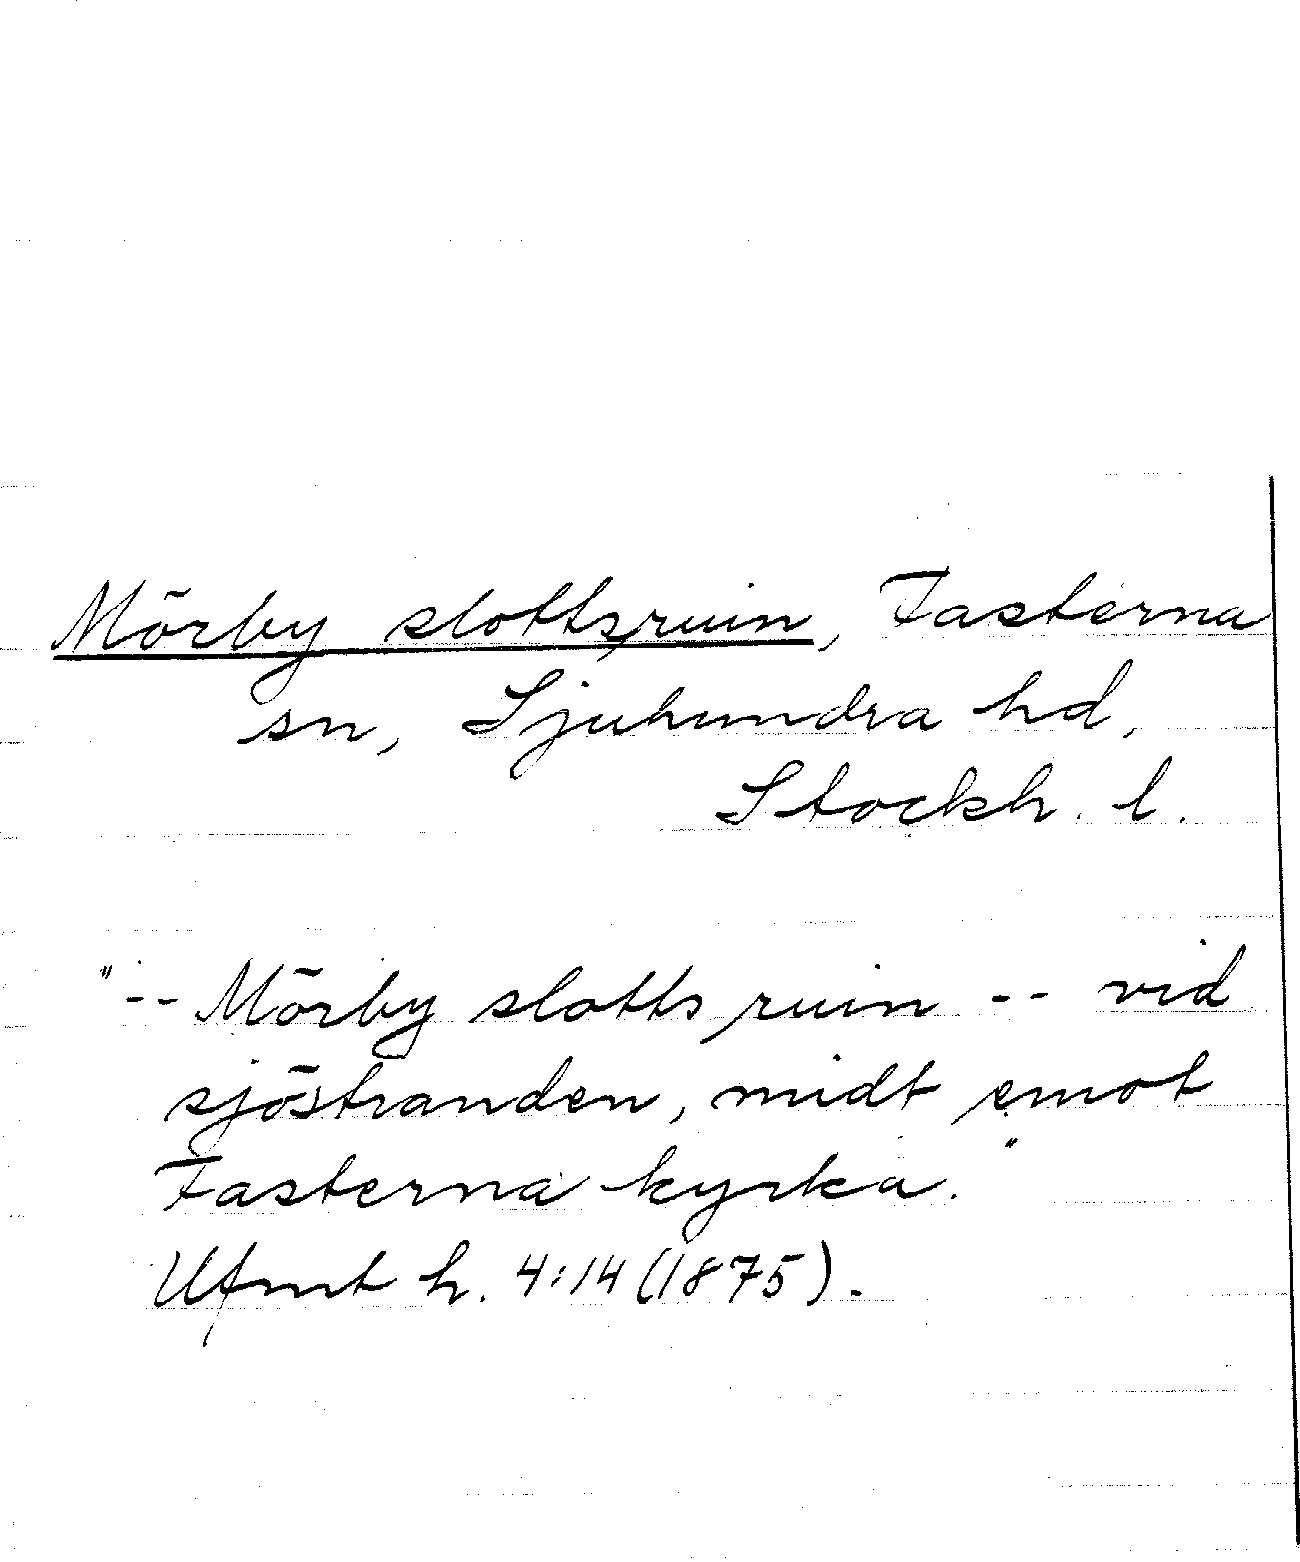 Mörby slottsruin, Fasterna
sn, Sjuhundra hd,
Stockh. l.
"-- Mörby slotts ruin -- vid
sjöstranden, midt emot
Fasterna kyrka."
Ufmt h. 4:14 (1875).